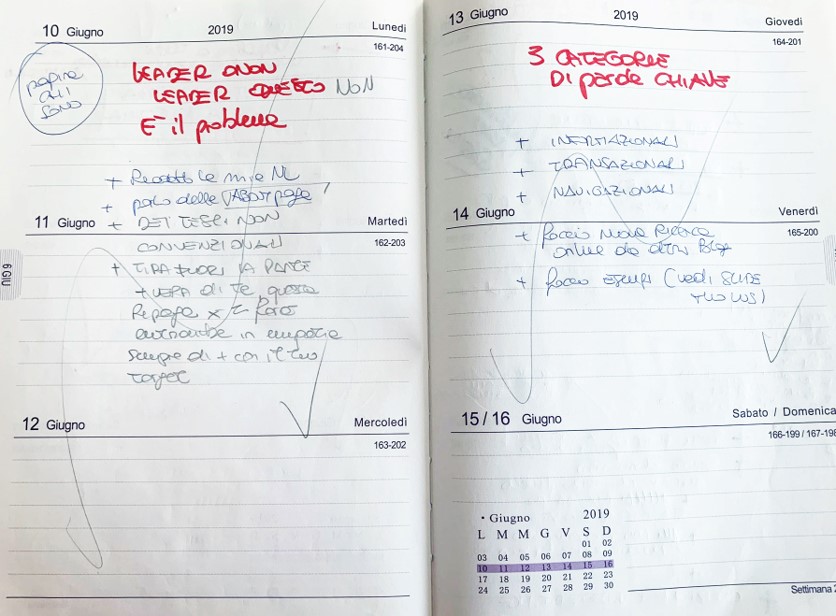 10 Giugno 2019 Lunedì
161-204
pagine
chi
sono
LEADER O NON
LEADER QUESTO NON
È il problema
+ le mie NL
+ parlo delle "ABOUT page"
11 Giugno Martedì
162-203
+ DEI TESTI NON
CONVENZIONALI
+ TIRA FUORI LA PARTE
+ VERA di te questo
Ripaga x
in empatia
sempre di + con il tuo
TARGET
12 Giugno Mercoledì
163-202
6 GIU
13 Giugno 2019 Giovedì
164-201
3 CATEGORIE
DI parole CHIAVE
+ INFORMAZIONALI
+ TRANSAZIONALI
+ NAVIGAZIONALI
14 Giugno Venerdì
165-200
+ faccio Ricerca
online da altri Blog
+ faccio ESEMPI (vedi SLIDE
15 / 16 Giugno Sabato / Domenica
166-199 / 167-198
• Giugno 2019
L M M G V S D
01 02
03 04 05 06 07 08 09
10 11 12 13 14 15 16
17 18 19 20 21 22 23
24 25 26 27 28 29 30
Settimana